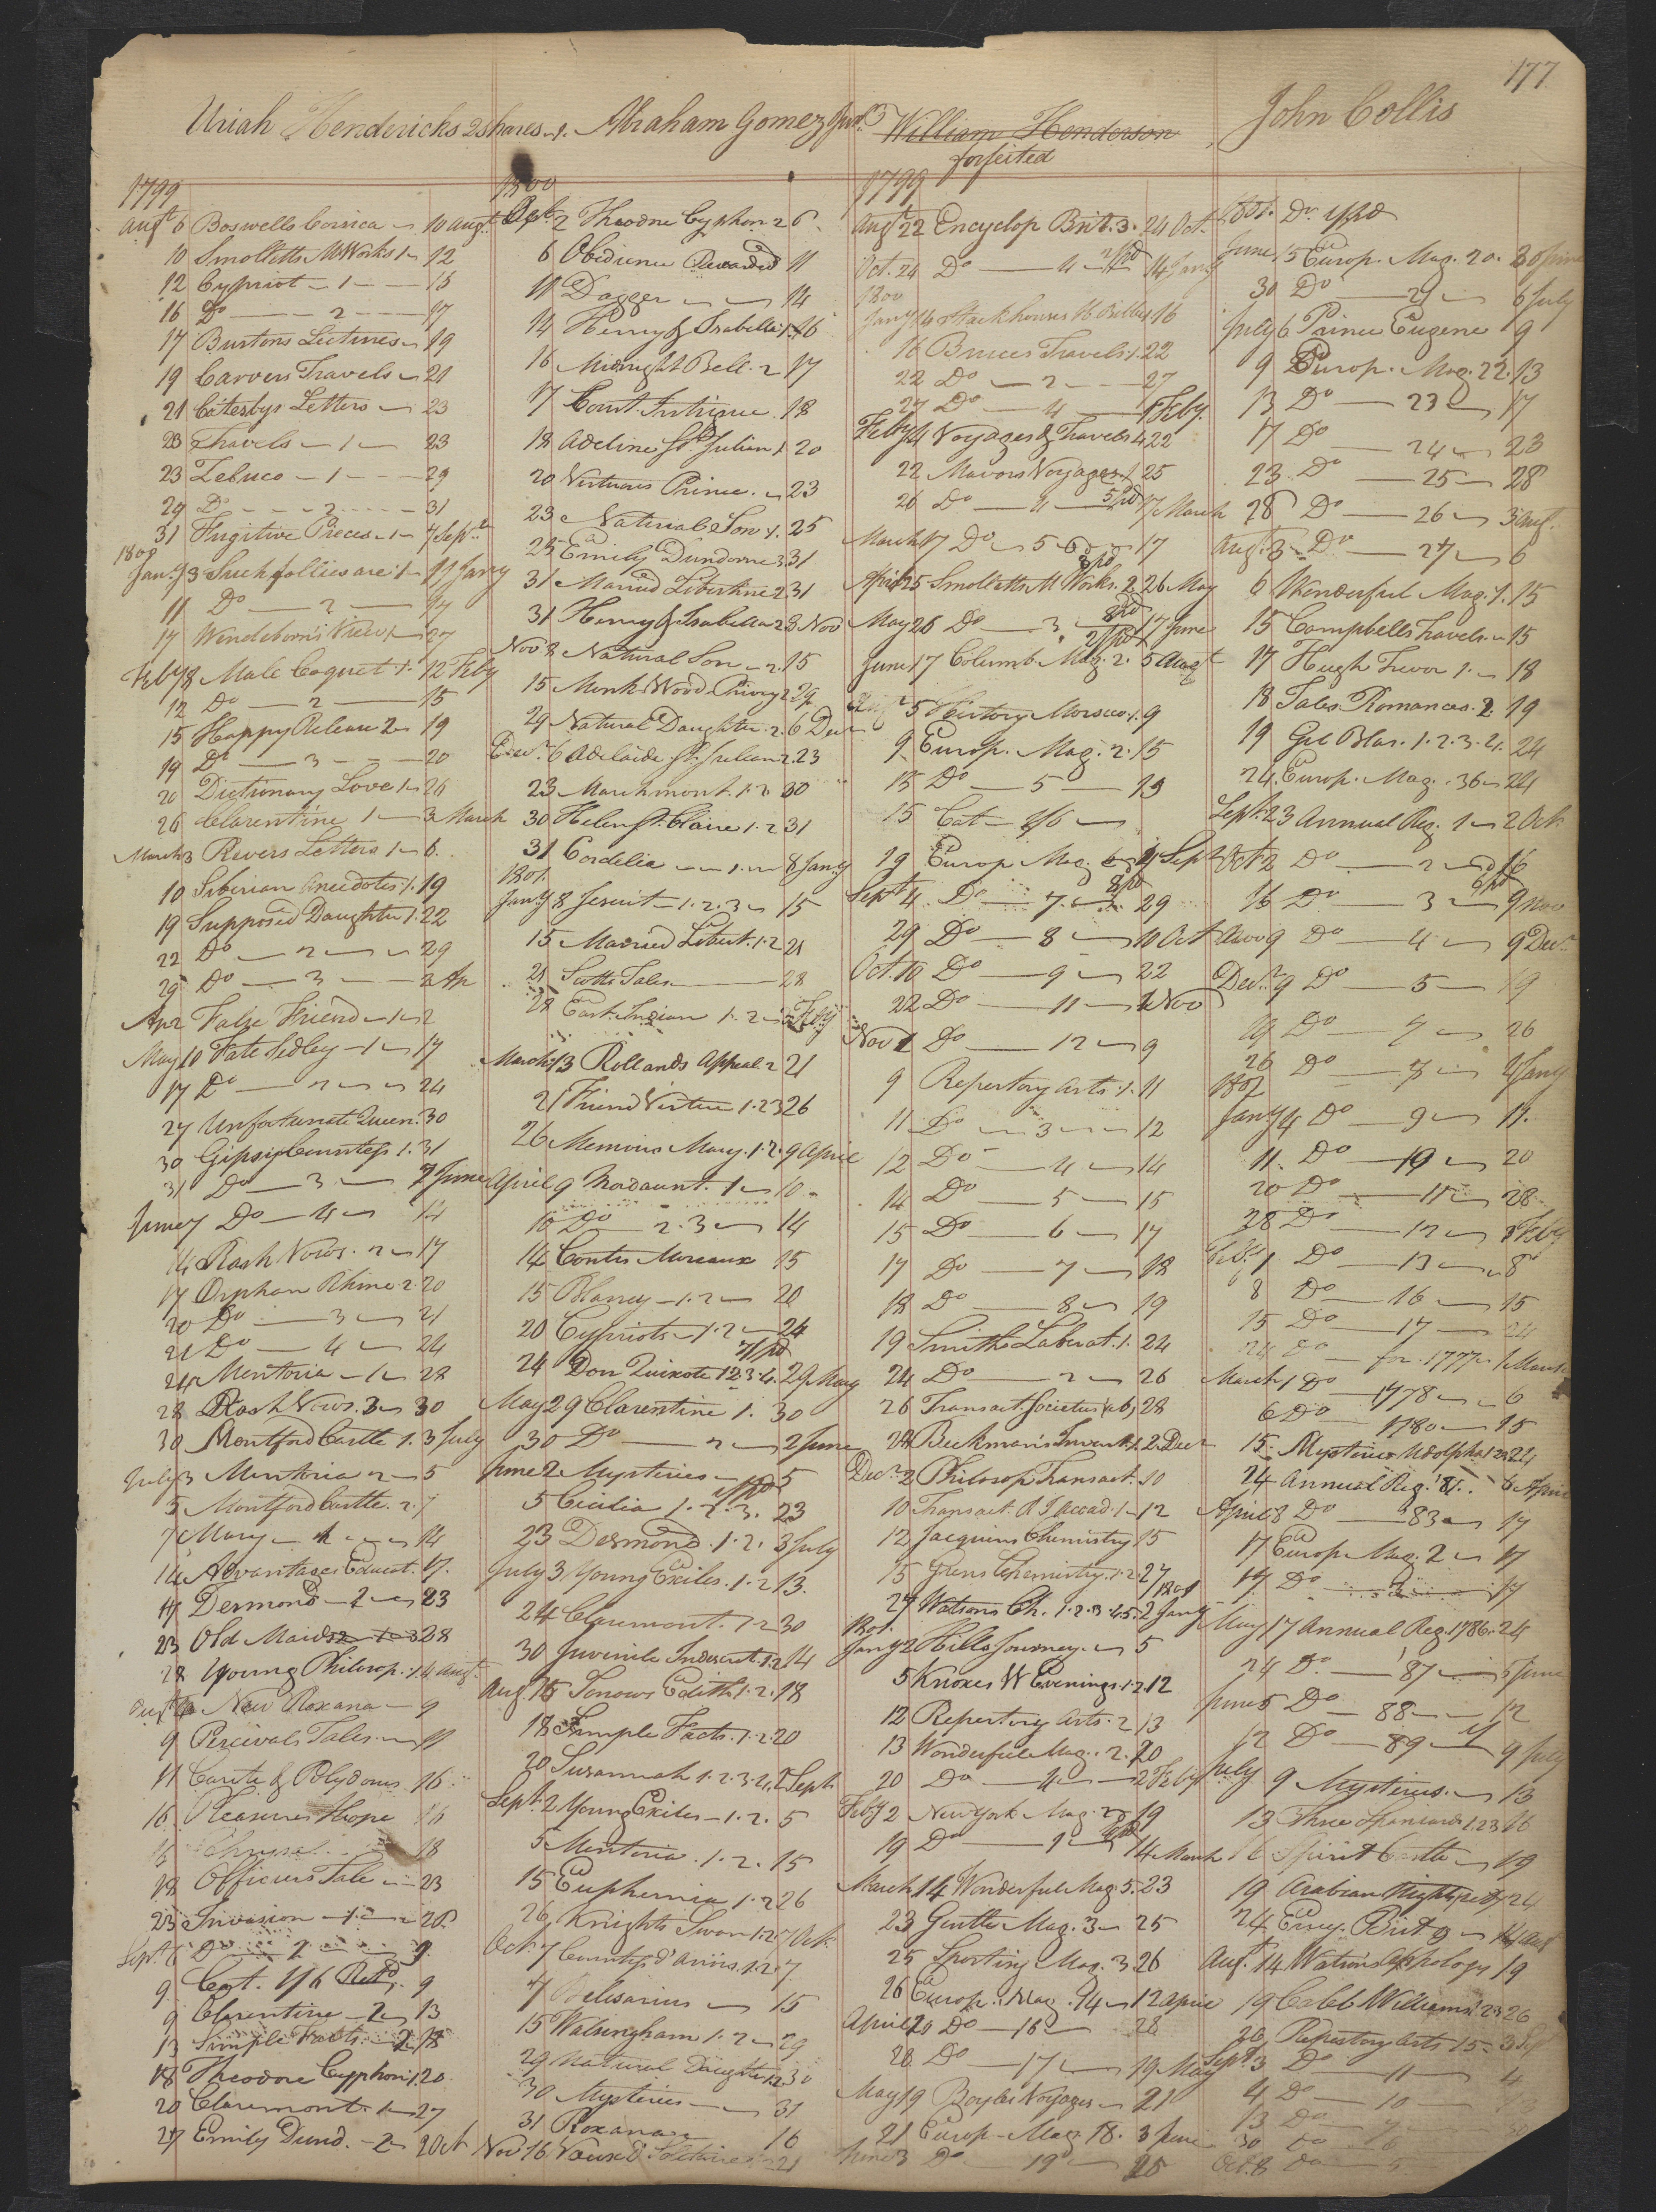 177
Uriah Hendericks 2 shares
1799
Augt 6 Boswells Corsica 10 Augt
10 Smolletts M Works 1 12
12 Cypriot 1 15
16 Do 2 17
17 Burtons Lectures 19
19 Carvers Travels 21
21 Catesbys Letters 23
23 Travels 1 23
23 Zeluco 1 29
29 Do 2 31
31 Fugitive Pieces 1 7 Sept
1800
Jany 3 Such follies are 1 11 Jany
11 Do 2 17
17 Wendeborn's View 1 27
Feby 8 Male Coquet 1 12 Feby
12 Do 2 15
15 Happy Release 2 19
19 Do 3 20
20 Dictionary Love 1 26
26 Clarentine 1 3 March
March 3 Rivers Letters 1 6
10 Siberian Anecdotes 1. 19
19 Supposed Daughter 1. 22
22 Do 2 29
29 Do 3 2 Ap
Ap 2 False Friend 1 2
May 10 Fate Sedley 1 17
17 Do 2 24
27 Unfortunate Queen. 30
30 Gipsy Countess 1. 31
31 Do 3 7 June
June 7 Do 4 14
14 Rash Vows. 2 17
17 Orphan Rhine 2 20
20 Do 3 21
21 Do 4 24
24 Mentoria 1 28
28 Rash Vows. 3 30
30 Montford Castle 1. 3 July
July 3 Mentoria 2 5
5 Montford Castle. 2. 7
7 Mary 14
14 Advantages Educat. 17.
17 Desmond 2 23
23 Old Maids 28
28 Young Philosop. 1. 4 Augt
New Roxana 9
9 Percivals Tales 11
11 Carite & Polydorus 16
16 Pleasures Hope 16
16 Chrysal 18
18 Officers Tale 23
23 Invasion 1 28
Sept 6 Do 2 9
9 Cat. 1/6 Retd. 9
9 Clarentine 2 13
13 Simple Facts 2 18
18 Theodore Cyphon 1. 20
20 Claremont. 1 27
27 Emily Dund. 2 2 Oct
Abraham Gomez Junr.
1800
Oct 2 Theodore Cyphon 2 6
6 Obedience Rewarded 11
11 Dagger 14
14 Henry & Isabella 1. 16
16 Midnight Bell. 2 17
17 Court Intrigue. 18
18 Adeline St Julian 1 20
20 Virtuous Prince. 23
23 Natural Son 1. 25
25 Emily Dundorne 3 31
31 Married Libertine 2 31
31 Henry & Isabella 2 8 Nov
Nov 8 Natural Son 2. 15
15 Monk Wood Priory 2 29
29 Natural Daughter. 2. 6 Decr
Decr. 6 Adelaide St. Julian 2. 23
23 Marchmont. 1. 2. 30
30 Helen St. Claire 1. 2 31
31 Cordelia 1. 8 Jany
1801.
Jany 8 Jesuit 1. 2. 3 15
15 Married Libert. 1. 2 21
21 Scotts Tales 28
28 East Indian 1. 2 Feby
March 13 Rollands Appeal 2 21
21 Friend Virtue 1. 2 3 26
26 Memoirs Mary. 1. 2. 9 April
April 9 Mordaunt. 1 10
10 Do 2. 3 14
14 Contes Moreaux 15
15 Blansey 1. 2 20
20 Cypriots 1. 2 24
24 Don Quixote 1 2 3 4. 29 May
May 29 Clarentine 1. 30
30 Do 2 2 June
June 2 Mysteries 5
5 Cicilia 1. 2. 3. 23
23 Desmond. 1. 2. 3 July
July 3 Young Exiles. 1. 2 13.
24 Claremont. 1 2 30
30 Juvenile Indescret. 1. 2 14
Aug 15 Sorrows Edith 1. 2. 18
18 Simple Facts. 1. 2. 20
20 Susannah 1. 2. 3. 4. 2 Sept
Sept. 2 Young Exiles 1. 2. 5
5 Mentoria. 1. 2. 15
15 Euphemia 1. 2 26
26 Knights Swan 1. 2. 7 Oct
Oct. 7 County d'Anois. 1. 2. 7.
7 Belisarius 15
15 Walsingham 1. 2 29
29 Natural Daughter 1 2 30
30 Mysteries 31
31 Roxana 16
Nov 16 21
William Henderson
forfeited
1799
Augt 22 Encyclop Brit. 3. 24 Oct.
Oct. 24 Do 4 14 Jany
1800
Jany 14 Stackhouses H Bible 16
16 Bruces Travels. 1. 22
22 Do 2 27
27 Do 4 1 Feby.
Feby 14 Voyages & Travels 4 22
22 Mavors Voyages 1 25
26 Do 4 17 March
March 17 Do 5 17
April 25 Smolletts M Works. 2 26 May
May 26 Do 3 17 June
June 17 Columb. Mag. 2. 5 Augt
Augt 5 History Morocco 1. 9
9 Europ. Mag. 2. 15
15 Do 5 19
15 Cat 1/6
19 Europ Mag. 6 4 Sept
Sept 4 Do 7 29
29 Do 8 10 Oct
Oct. 10 Do 9 22
22 Do 11 1 Nov
Nov 1 Do 12 9
9 Repertory Arts. 1. 11
11 Do 3 12
12 Do 4 14
14 Do 5 15
15 Do 6 17
17 Do 7 18
18 Do 8 19
19 Smiths Laborat. 1. 24
24 Do 2 26
26 Transact Societies (a b) 28
28 Beckman's Invent. 1. 2 Decr
Decr. 2 Philosop Transact. 10
10 Transact. R I Accad. 1 12
12 Jacquins Chemistry 15
15 Grens Chemistry. 1. 2 27
27 Watsons Ch. 1. 2. 3. 4. 5. 2 Jany
1801
Jany 2 Hills Journey. 5
5 Knoxes W Evenings. 1. 2 12
12 Repertory Arts. 2 13
13 Wonderful Mag. 2. 20
20 Do 4 2 Feby
Feby 2 New York Mag. 2 19
19 Do 1 14 March
March 14 Wonderful Mag 5. 23
23 Gentle Mag. 3 25
25 Sporting Mag. 3. 26
26 Europ. Mag. 14 12 April
April 20 Do 16 28
28 Do 17 19 May
May 19 Boyles Voyages 21
21 Europ. Mag 18. 3 June
June 3 Do 19 25
John Collis
June 15 Europ. Mag. 20. 30 June
30 Do 21 6 July
July 6 Prince Eugene 9
9 Europ. Mag. 22. 13
13 Do 23 17
17 Do 24 23
23 Do 25 28
28 Do 26 3 Aug.
Aug. 3 Do 27 6
6 Wonderful Mag. 1. 15
15 Campbells Travels 15
17 Hugh Trevor 1. 18
18 Tales Romances. 2. 19
19 Gil Blas. 1. 2. 3. 4. 24
24. Europ. Mag. 36 24
Sept. 23 Annual Reg. 1 2 Oct.
Oct 2 Do 2 16
16 Do 3 9 Nov
Nov 9 Do 4 9 Decr
Decr. 9 Do 5 19
19 Do 7 26
26 Do 8 4 Jany
1802
Jany 4 Do 9 11.
11. Do 10 20
20 Do 11 28
28 Do 12 1 Feby
Feby 1 Do 13 8
8 Do 16 15
15 Do 17 24
24 Do for 1777 1 March
March 1 Do 1778 6
6 Do 1780 15
15. Mysteries Udolpho 1 2 3. 24
24 Annual Reg. '81. 6 April
April 8 Do 83 17
17 Europ Mag. 2 17
17 Do 17
May 17 Annual Reg. 1786. 24
24 Do. '87 5 June
June 5 Do 88 12
12 Do 89 9 July
July 9 Mysteries. 13
13 Three Spaniards 1. 2 3 16
16 Spirit Castle 19
19 Arabian Nights 24
24 Ency. Brit 9 14 Aug
Augt. 14 Watsons Apology 19
19 Caleb Williams 1. 2 3 26
26 Repertory Arts 15 3 Sep
Sept 3 Do 11 4
4 Do 10 13
13 Do
30 Do
Oct. 8 Do 5